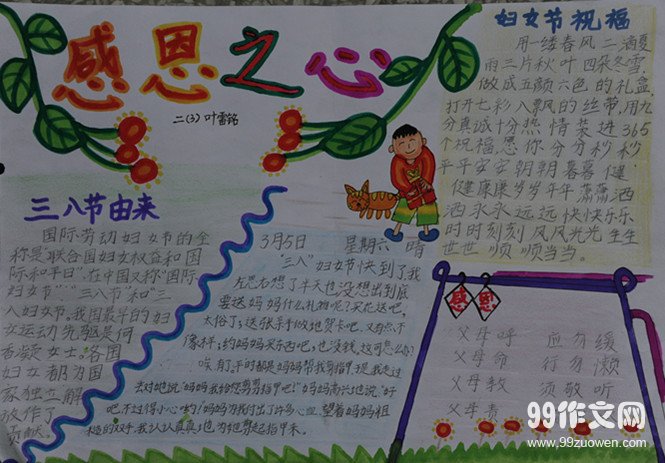 感恩之心
二(3) 叶雷铭
妇女节祝福
用一缕春风二滴夏
雨三片秋叶四朵冬雪,
做成五颜六色的礼盒,
打开七彩八飘风的丝带,用九
分真诚十分热情装进365
个祝福,愿你分分秒秒
平平安安朝朝暮暮健
健康康岁岁年年潇潇洒
洒永永远远快快乐乐
时时刻刻风风光光生生
世世顺顺当当。
三八节由来
国际劳动妇女节的全
称是"联合国妇女权益和国
际和平日"。在中国又称"国际
妇女节""三八节"和"三
八"妇女节。我国最早的妇
女运动先驱是何
香凝女士。各国
妇女都为国
家独立解
放作了
贡献。
3月5日 星期六 晴
"三八"妇女节快到了我
左思右想了半天也没想出到底
要送妈妈什么礼物呢?买花送吧,
太俗了;送张亲手做地贺卡吧,又自然不
像样;约妈妈买东西吧,也没钱,这可怎么办?
唉,有了,平时都是妈妈帮我剪指甲,现我走过
去对她说:"妈妈我给您剪剪指甲吧!"妈妈高兴地说:"好
吧,不过得小心哟!妈妈为我付出了许多心血,望着妈妈粗
糙的双手,我认认真真地为她剪起指甲来。
感恩
父母呼 应勿缓
父母命 行勿懒
父母教 须敬听
父母责
99作文网
www.99zuowen.com